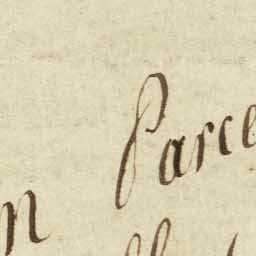 n Parce